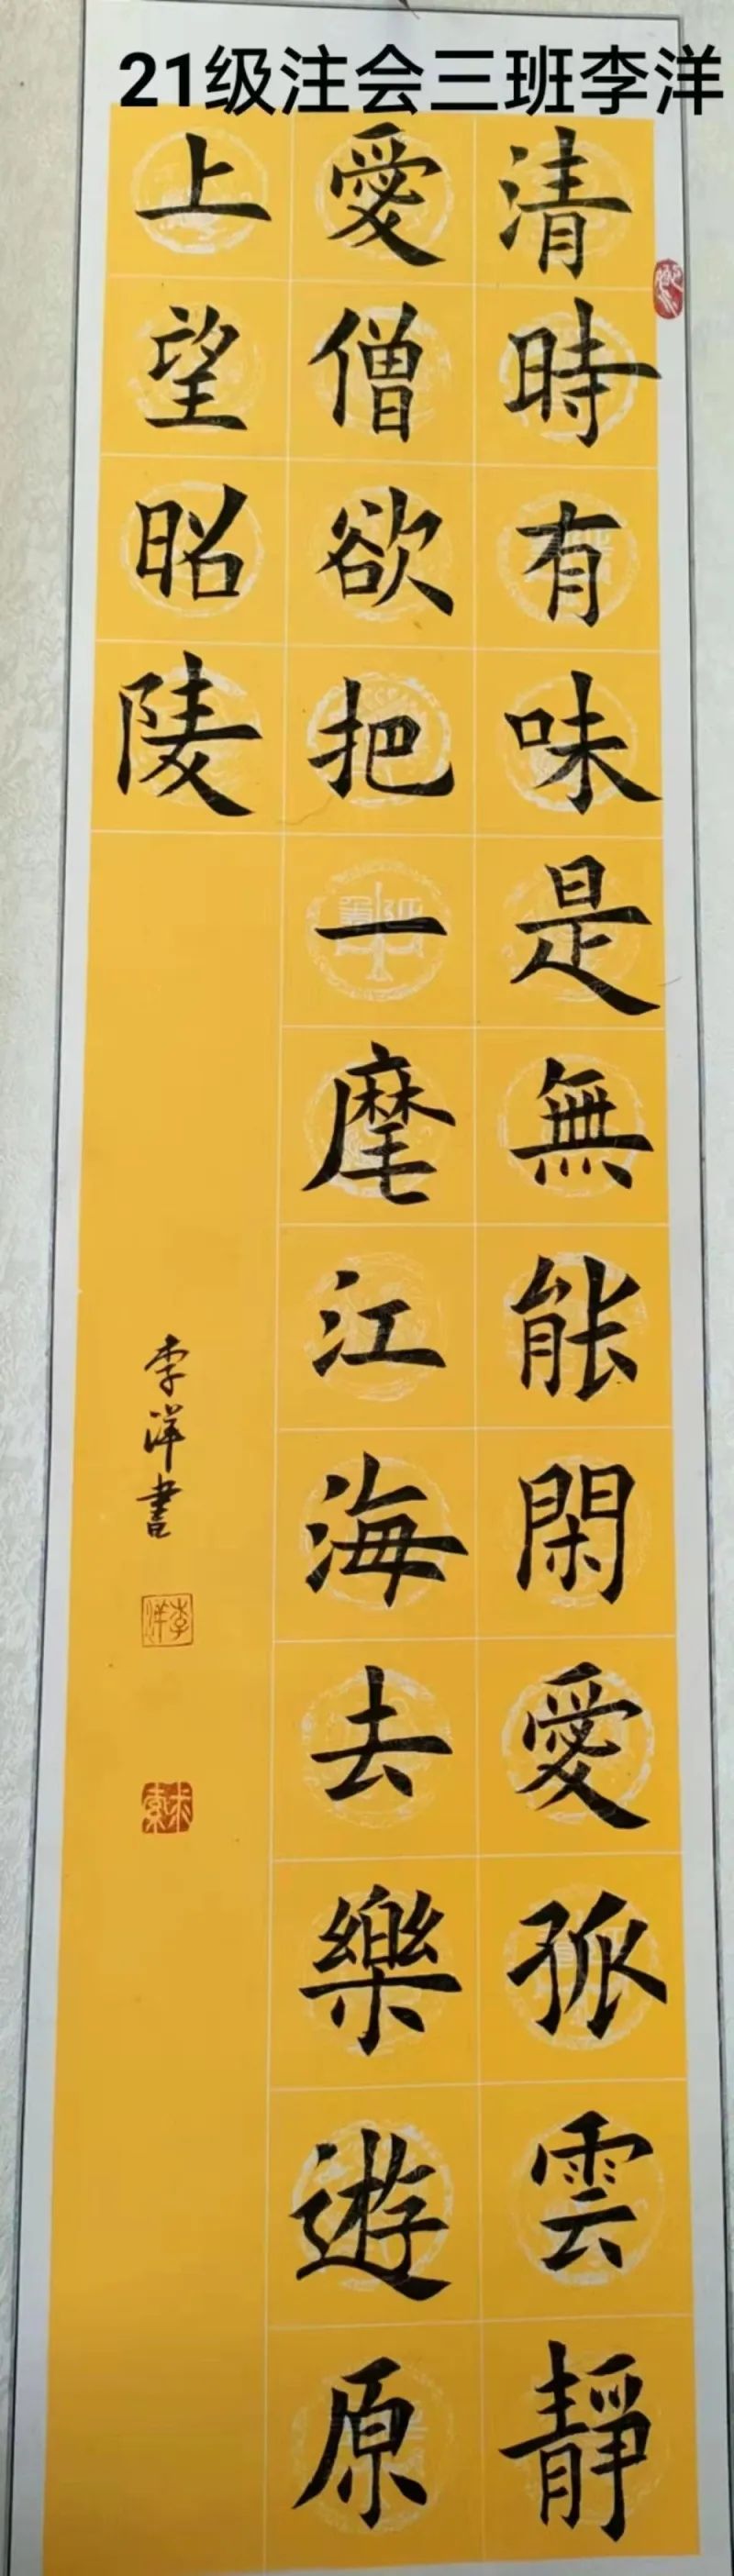 21级注会三班李洋
清時有味是無能閑愛孤雲靜
愛僧欲把一麾江海去樂遊原
上望昭陵
李洋書
李洋